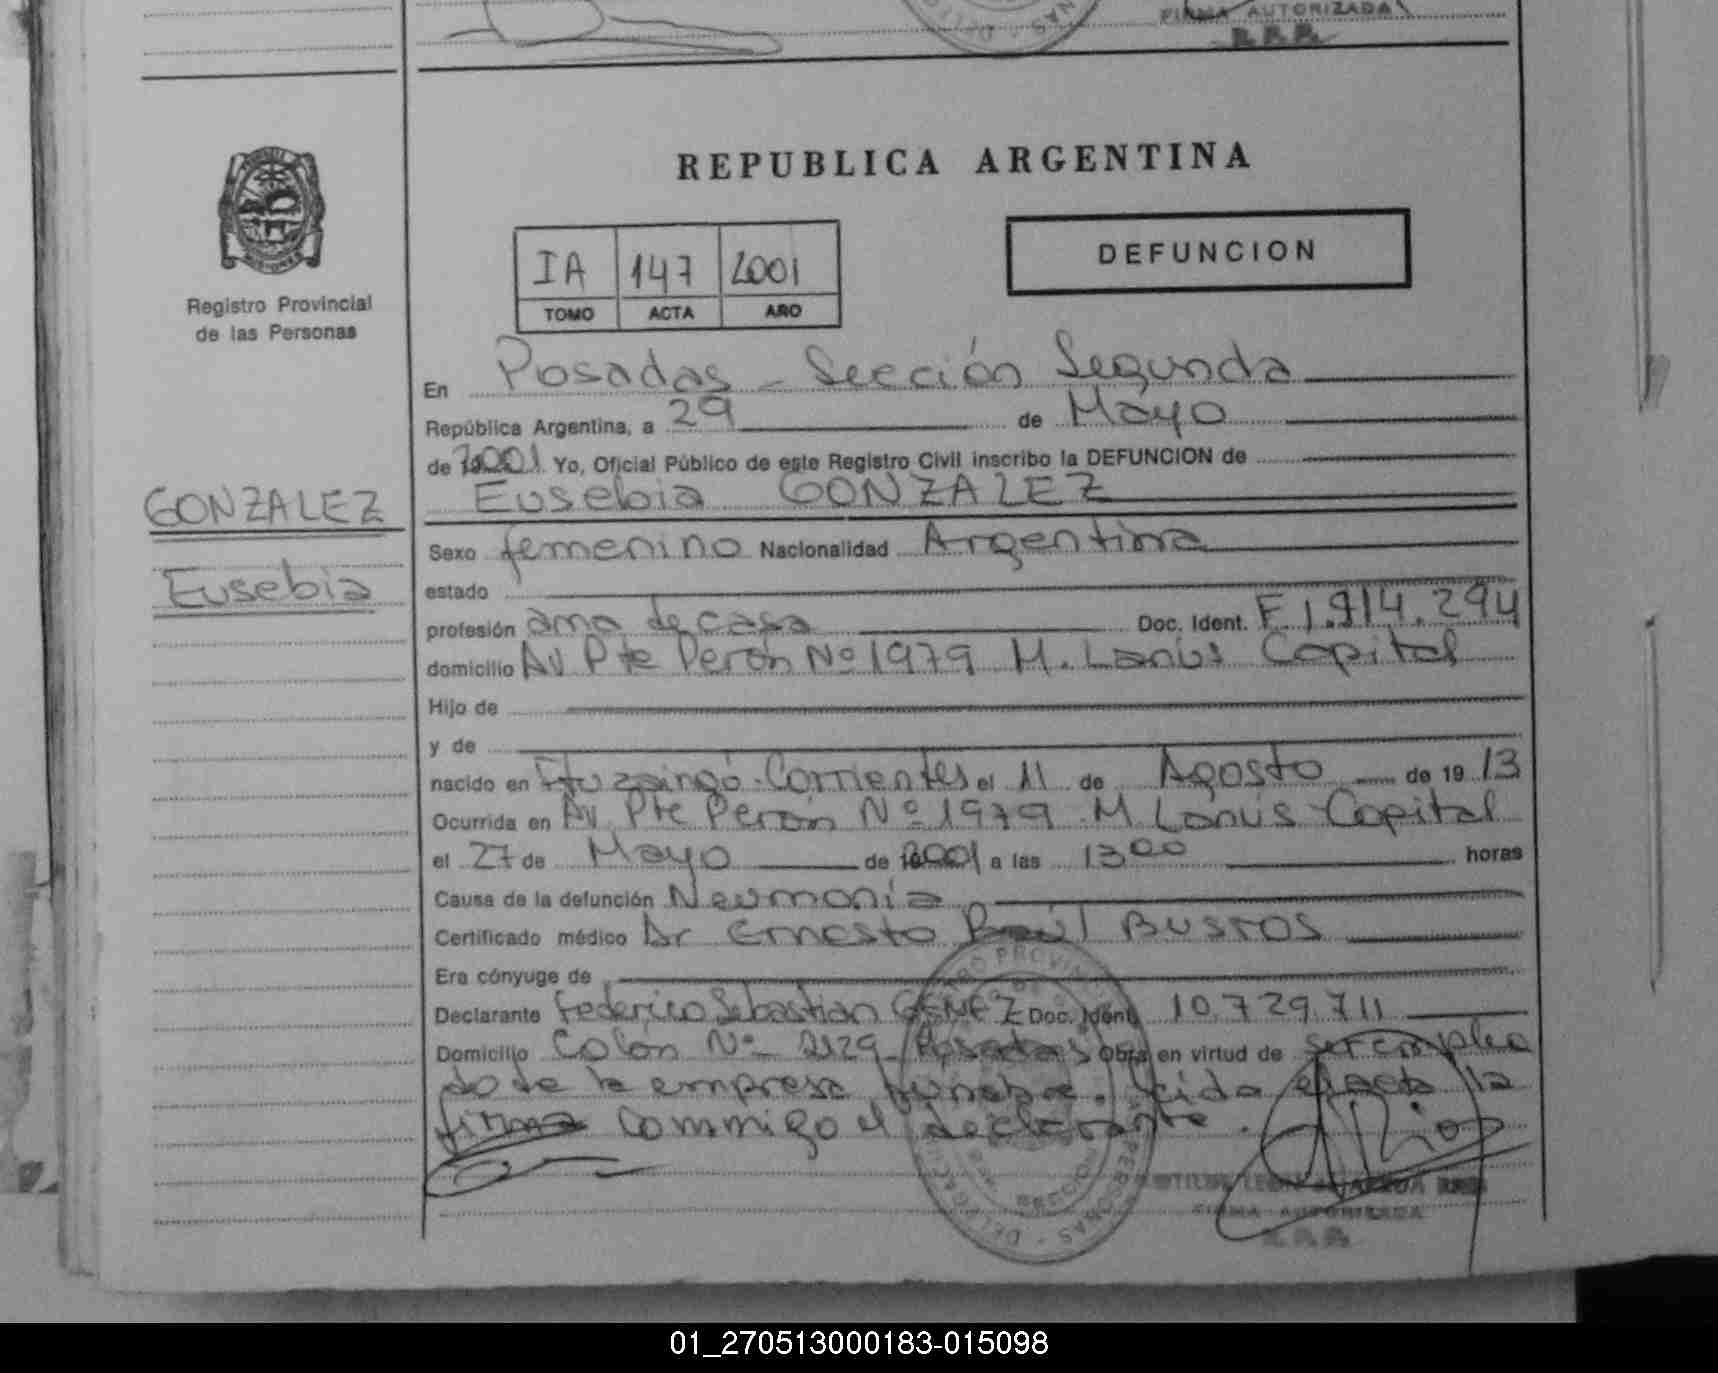 FIRMA AUTORIZADA
R.P.P.
REPUBLICA ARGENTINA
DEFUNCION
IA 147 2001
TOMO ACTA AÑO
MISIONES
Registro Provincial
de las Personas
En Posadas - Sección Segunda
República Argentina, a 29 de Mayo
de 2001 Yo, Oficial Público de este Registro Civil inscribo la DEFUNCION de
GONZALEZ
Eusebia
Eusebia GONZALEZ
Sexo femenino Nacionalidad Argentina
estado
profesión ama de casa Doc. Ident. F 1.914.294
domicilio Av Pte Perón Nº 1979 M. Lanús Capital
Hijo de
y de
nacido en Ituzaingó - Corrientes el 11 de Agosto de 1913
Ocurrida en Av. Pte Perón Nº 1979 M Lanús - Capital
el 27 de Mayo de 2001 a las 13 00 horas
Causa de la defunción Neumonía
Certificado médico Dr Ernesto Raúl BUSTOS
Era cónyuge de
Declarante Federico Sebastian GEMEZ Doc. Ident. 10.729.711
Domicilio Colon Nº 2129 - Posadas Obra en virtud de ser emplea
do de la empresa funebre. Leida el acta la
firma conmigo el declarante.
FIRMA AUTORIZADA
R.P.P.
01_270513000183-015098